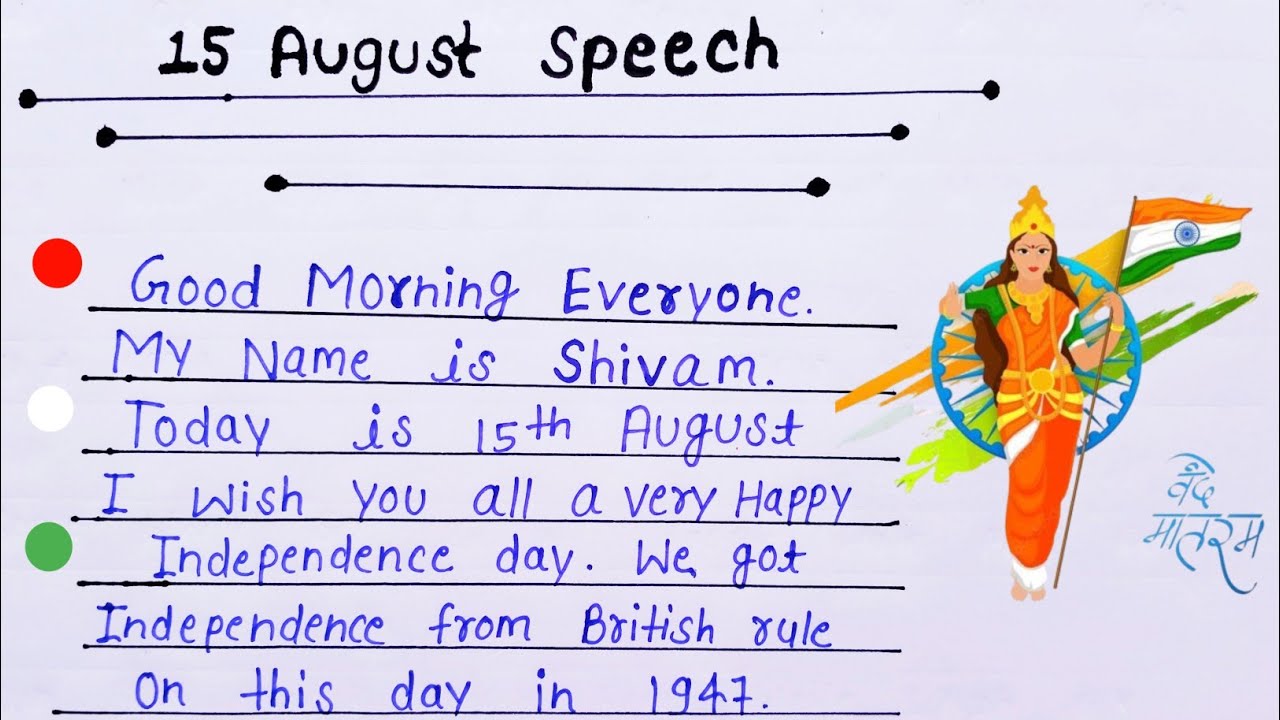 15 August Speech
Good Morning Everyone.
My Name is Shivam.
Today is 15th August
I wish you all a very Happy
Independence day. We got
Independence from British rule
On this day in 1947.
वंदे
मातरम